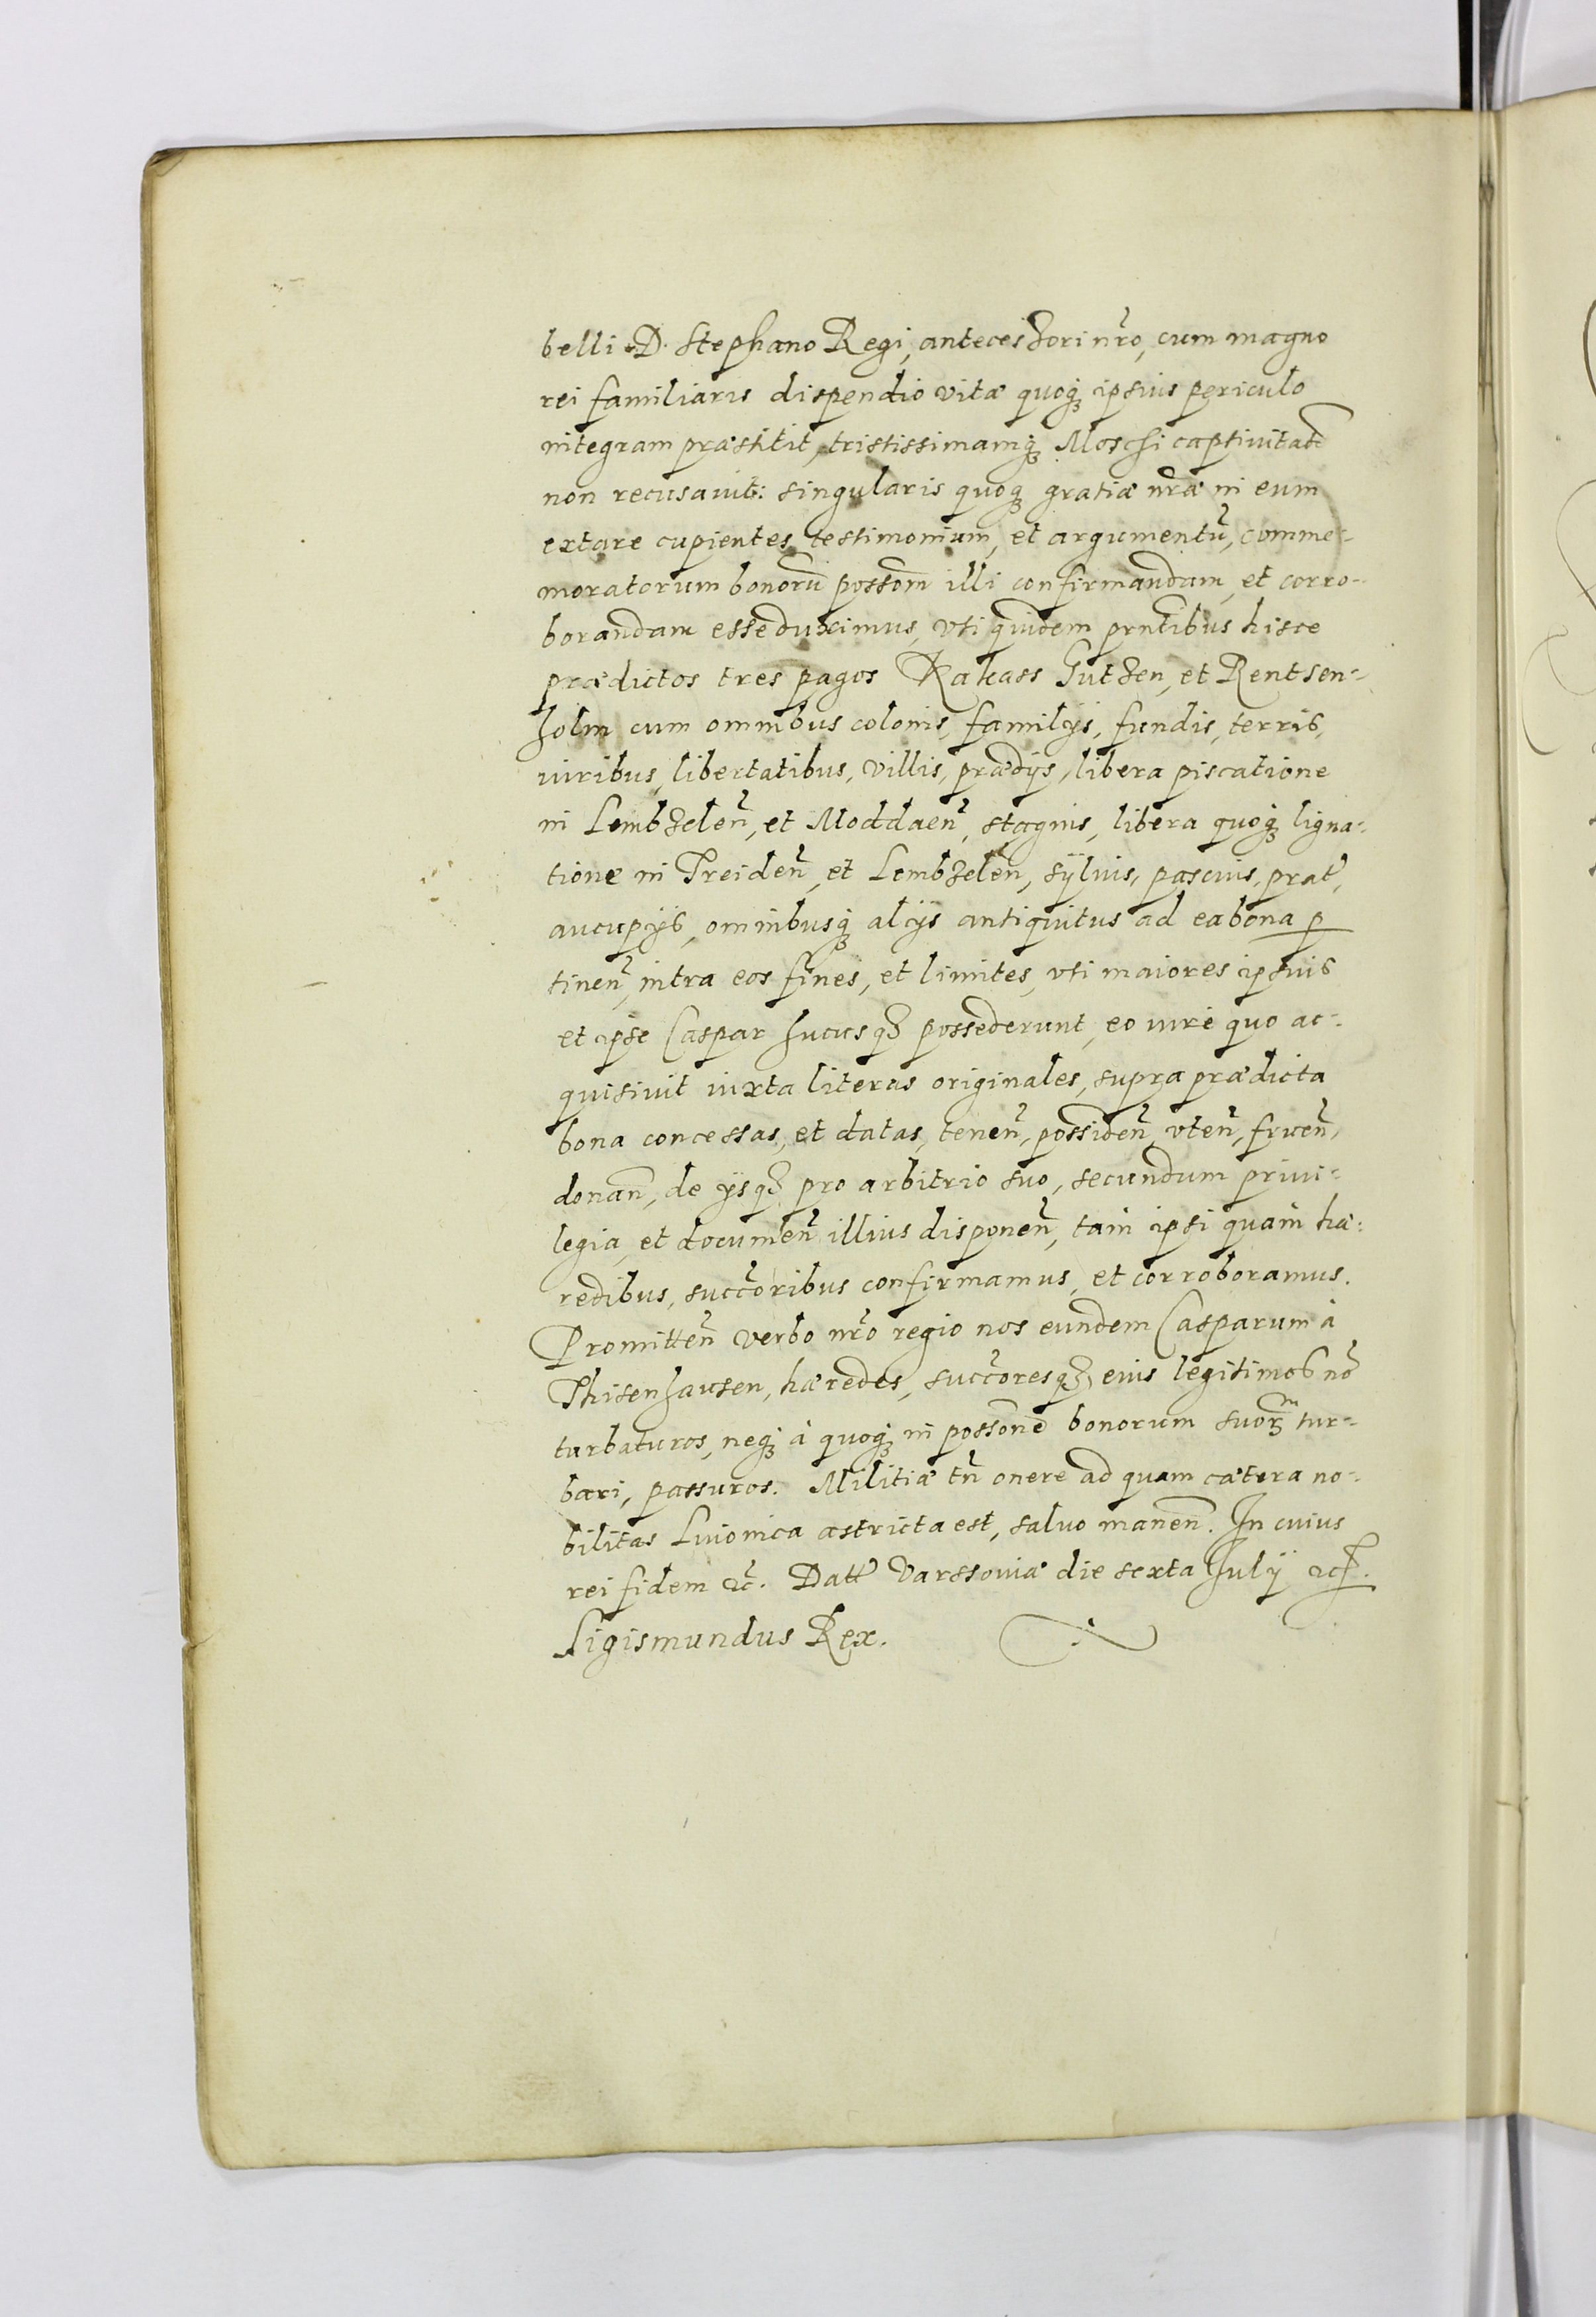 belli D. Stephano Regi, anteceszori nr̃o, cum magno
rei familiaris dispendio vitæ quoq; ipsius periculo
integram præstitit, tristissimamq; Moschi captivitatẽ
non recusavit: singularis quoq; gratiæ nr̃æ in eum
extare cupientes testimonium, et argumentũ, comme-
moratorum bonorũ possom̃ illi confirmandam, et corro-
borandam esse duximus, vti quidem prñtibus hisce
prædictos tres pagos Rakass Gutzen, et Rentsen-
holm cum omnibus colonis, familijs, fundis, terris,
iuribus, libertatibus, villis, prædijs, libera piscatione
in Lembzeleñ, et Moddaeñ, stagnis, libera quoq; ligna-
tione in Treideñ, et Lembzeleñ, sÿlvis, pascuis, prat̃,
aucupijs, omnibusq; alijs antiquitus ad ea bona p
tineñ, intra eos fines, et limites, vti maiores ipsius
et ipse Caspar hucusq; possederunt, eo iure quo ac-
quisivit iuxta literas originales, supra prædicta
bona concessas, et datas, teneñ, possideñ, vteñ, frueñ,
donañ, de ijsq; pro arbitrio suo, secundum privi-
legia, et documeñ illius disponeñ, tam ipsi quam hæ-
redibus, succc̃oribus confirmamus, et corroboramus.
Promitteñ verbo nr̃o regio nos eundem Casparum à
Thisenhausen, hæredes, succc̃oresq; eius legitimos nõ
turbaturos, neq; à quoq; in possonẽ bonorum suorꝝ tur-
bari, passuros. Militiæ tñ onere ad quam cætera no-
bilitas Livonica astricta est, salvo maneñ. In cuius
rei fidem &c̃. Datt̃ Varssoviæ die sexta Julij &c.
Sigismundus Rex.